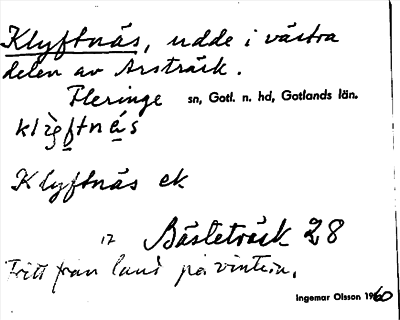 Klyftnäs, udde i västra
delen av Arsträsk.
Fleringe sn, Gotl. n. hd, Gotlands län.
Klyftnäs ek
12 Bästeträsk 28
Fritt från land på vintern.
Ingemar Olsson 1960